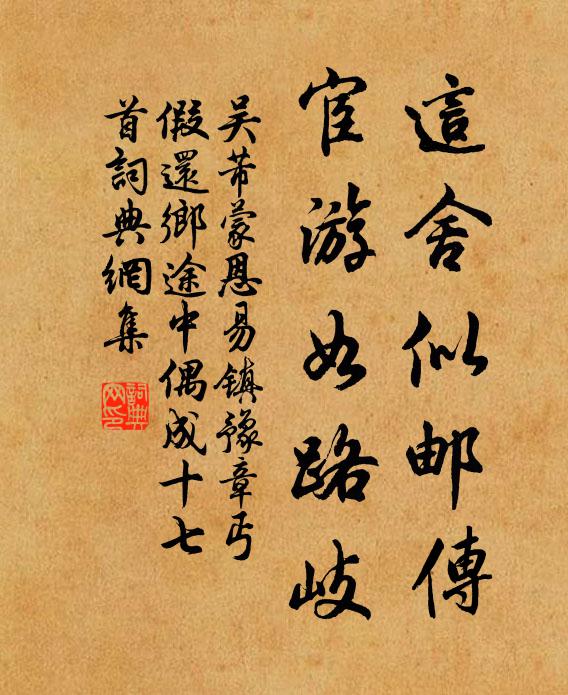 這舍似邮傳
宦游如路岐
吴芾蒙恩易镇豫章丐
假還鄉途中偶成十七
首詞典網集
詞典
网印